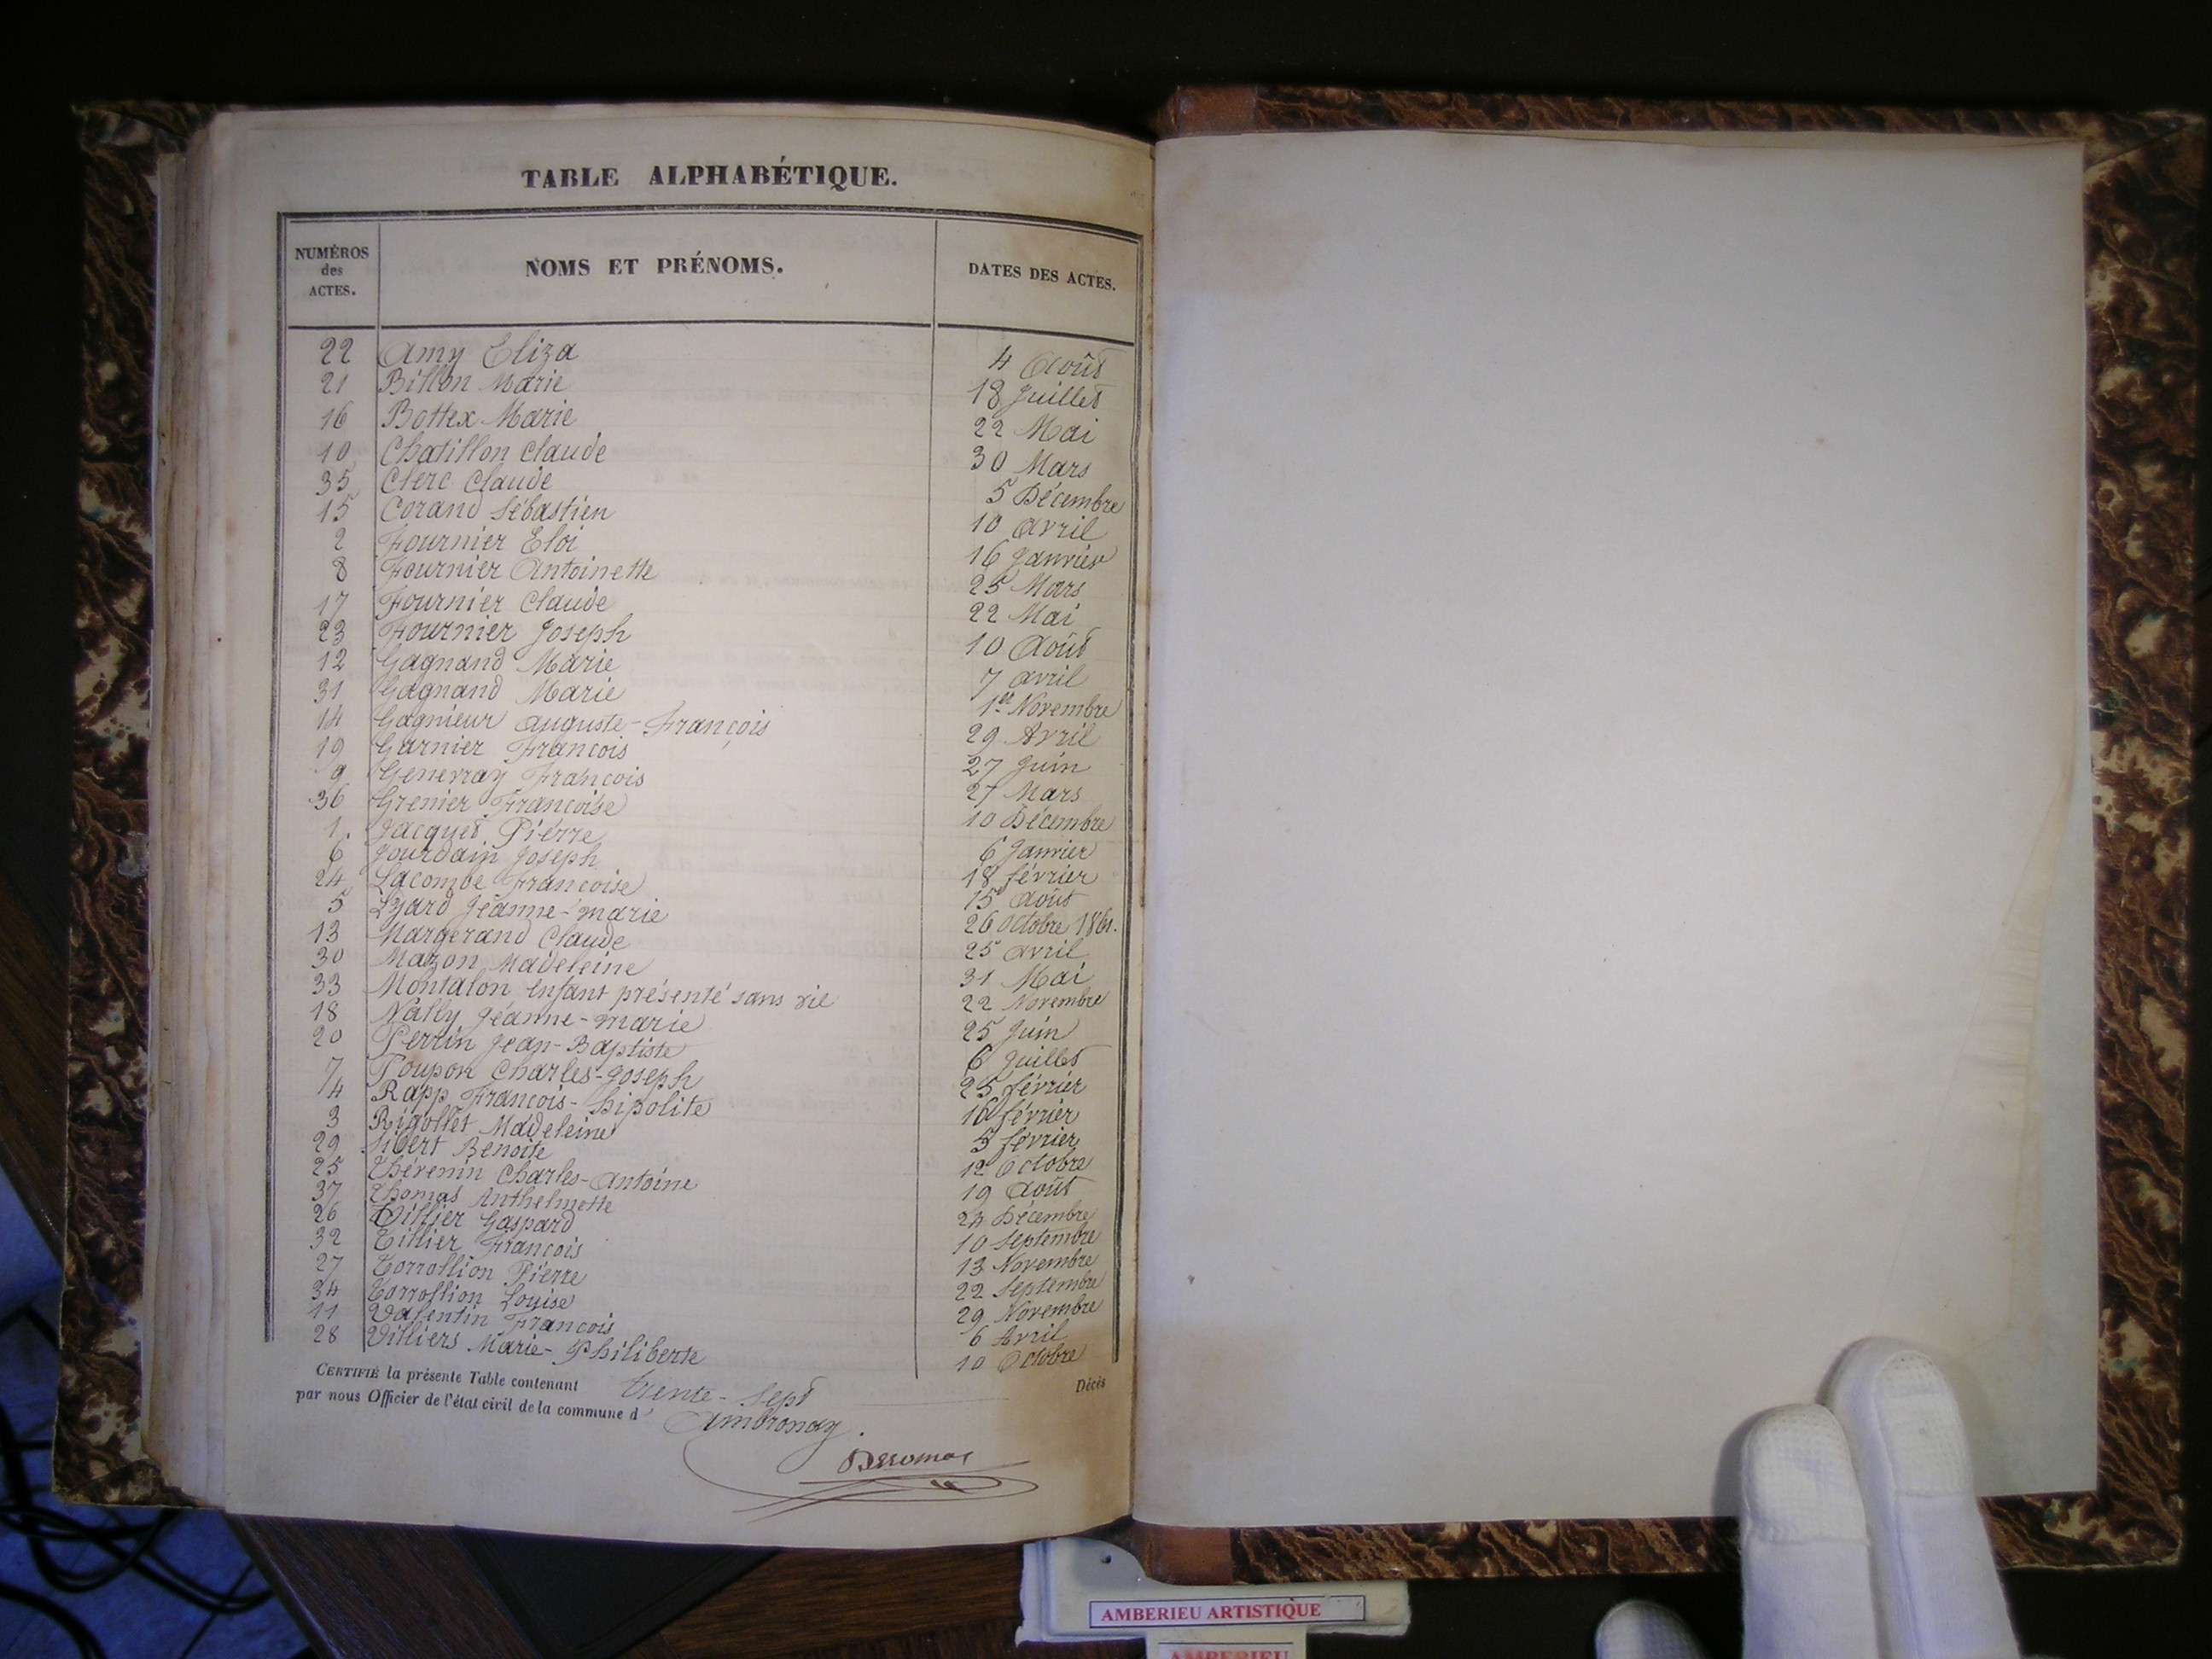 TABLE ALPHABÉTIQUE.
NUMÉROS
des
ACTES.
NOMS ET PRÉNOMS.
DATES DES ACTES.
22 Amy Eliza 4 Août
21 Billon Marie 18 Juillet
16 Bottex Marie 22 Mai
10 Chatillon Claude 30 Mars
35 Clerc Claude 5 Décembre
15 Corand Sébastien 10 avril
2 Fournier Eloi 16 Janvier
8 Fournier Antoinette 25 Mars
17 Fournier Claude 22 Mai
23 Fournier Joseph 10 Août
12 Gagnand Marie 7 avril
31 Gagnand Marie 1er Novembre
14 Gagnieur auguste-François 29 Avril
19 Garnier Francois 27 Juin
9 Generray Francois 27 Mars
36 Grenier Francoise 10 Décembre
1. Jacquet Pierre 6 Janvier
6 Jourdain Joseph 18 février
24 Lacombe Francoise 15 Août
5 Lyard Jeanne-marie 26 Octobre 1861.
13 Margerand Claude 25 avril
30 Mazon Madeleine 31 Mai
33 Montalon enfant présenté sans vie 22 Novembre
18 Nally Jeanne-marie 25 Juin
20 Perrin Jean-Baptiste 6 Juillet
7 Poupon Charles-Joseph 25 février
4 Rapp Francois-hipolite 16 février
3 Rigollet Madeleine 5 février
29 Sibert Benoite 12 Octobre
25 Thévenin Charles-Antoine 19 Août
37 Thomas Anthelmette 24 Décembre
26 Tillier Gaspard 10 Septembre
32 Tillier Francois 13 Novembre
27 Torrollion Pierre 22 Septembre
34 Torrollion Louise 29 Novembre
11 Valentin Francois 6 Avril
28 Villiers Marie-Philiberte 10 Octobre
CERTIFIÉ la présente Table contenant trente-sept Décès
par nous Officier de l'état civil de la commune d' Ambronay.
AMBERIEU ARTISTIQUE
AMBERIEU